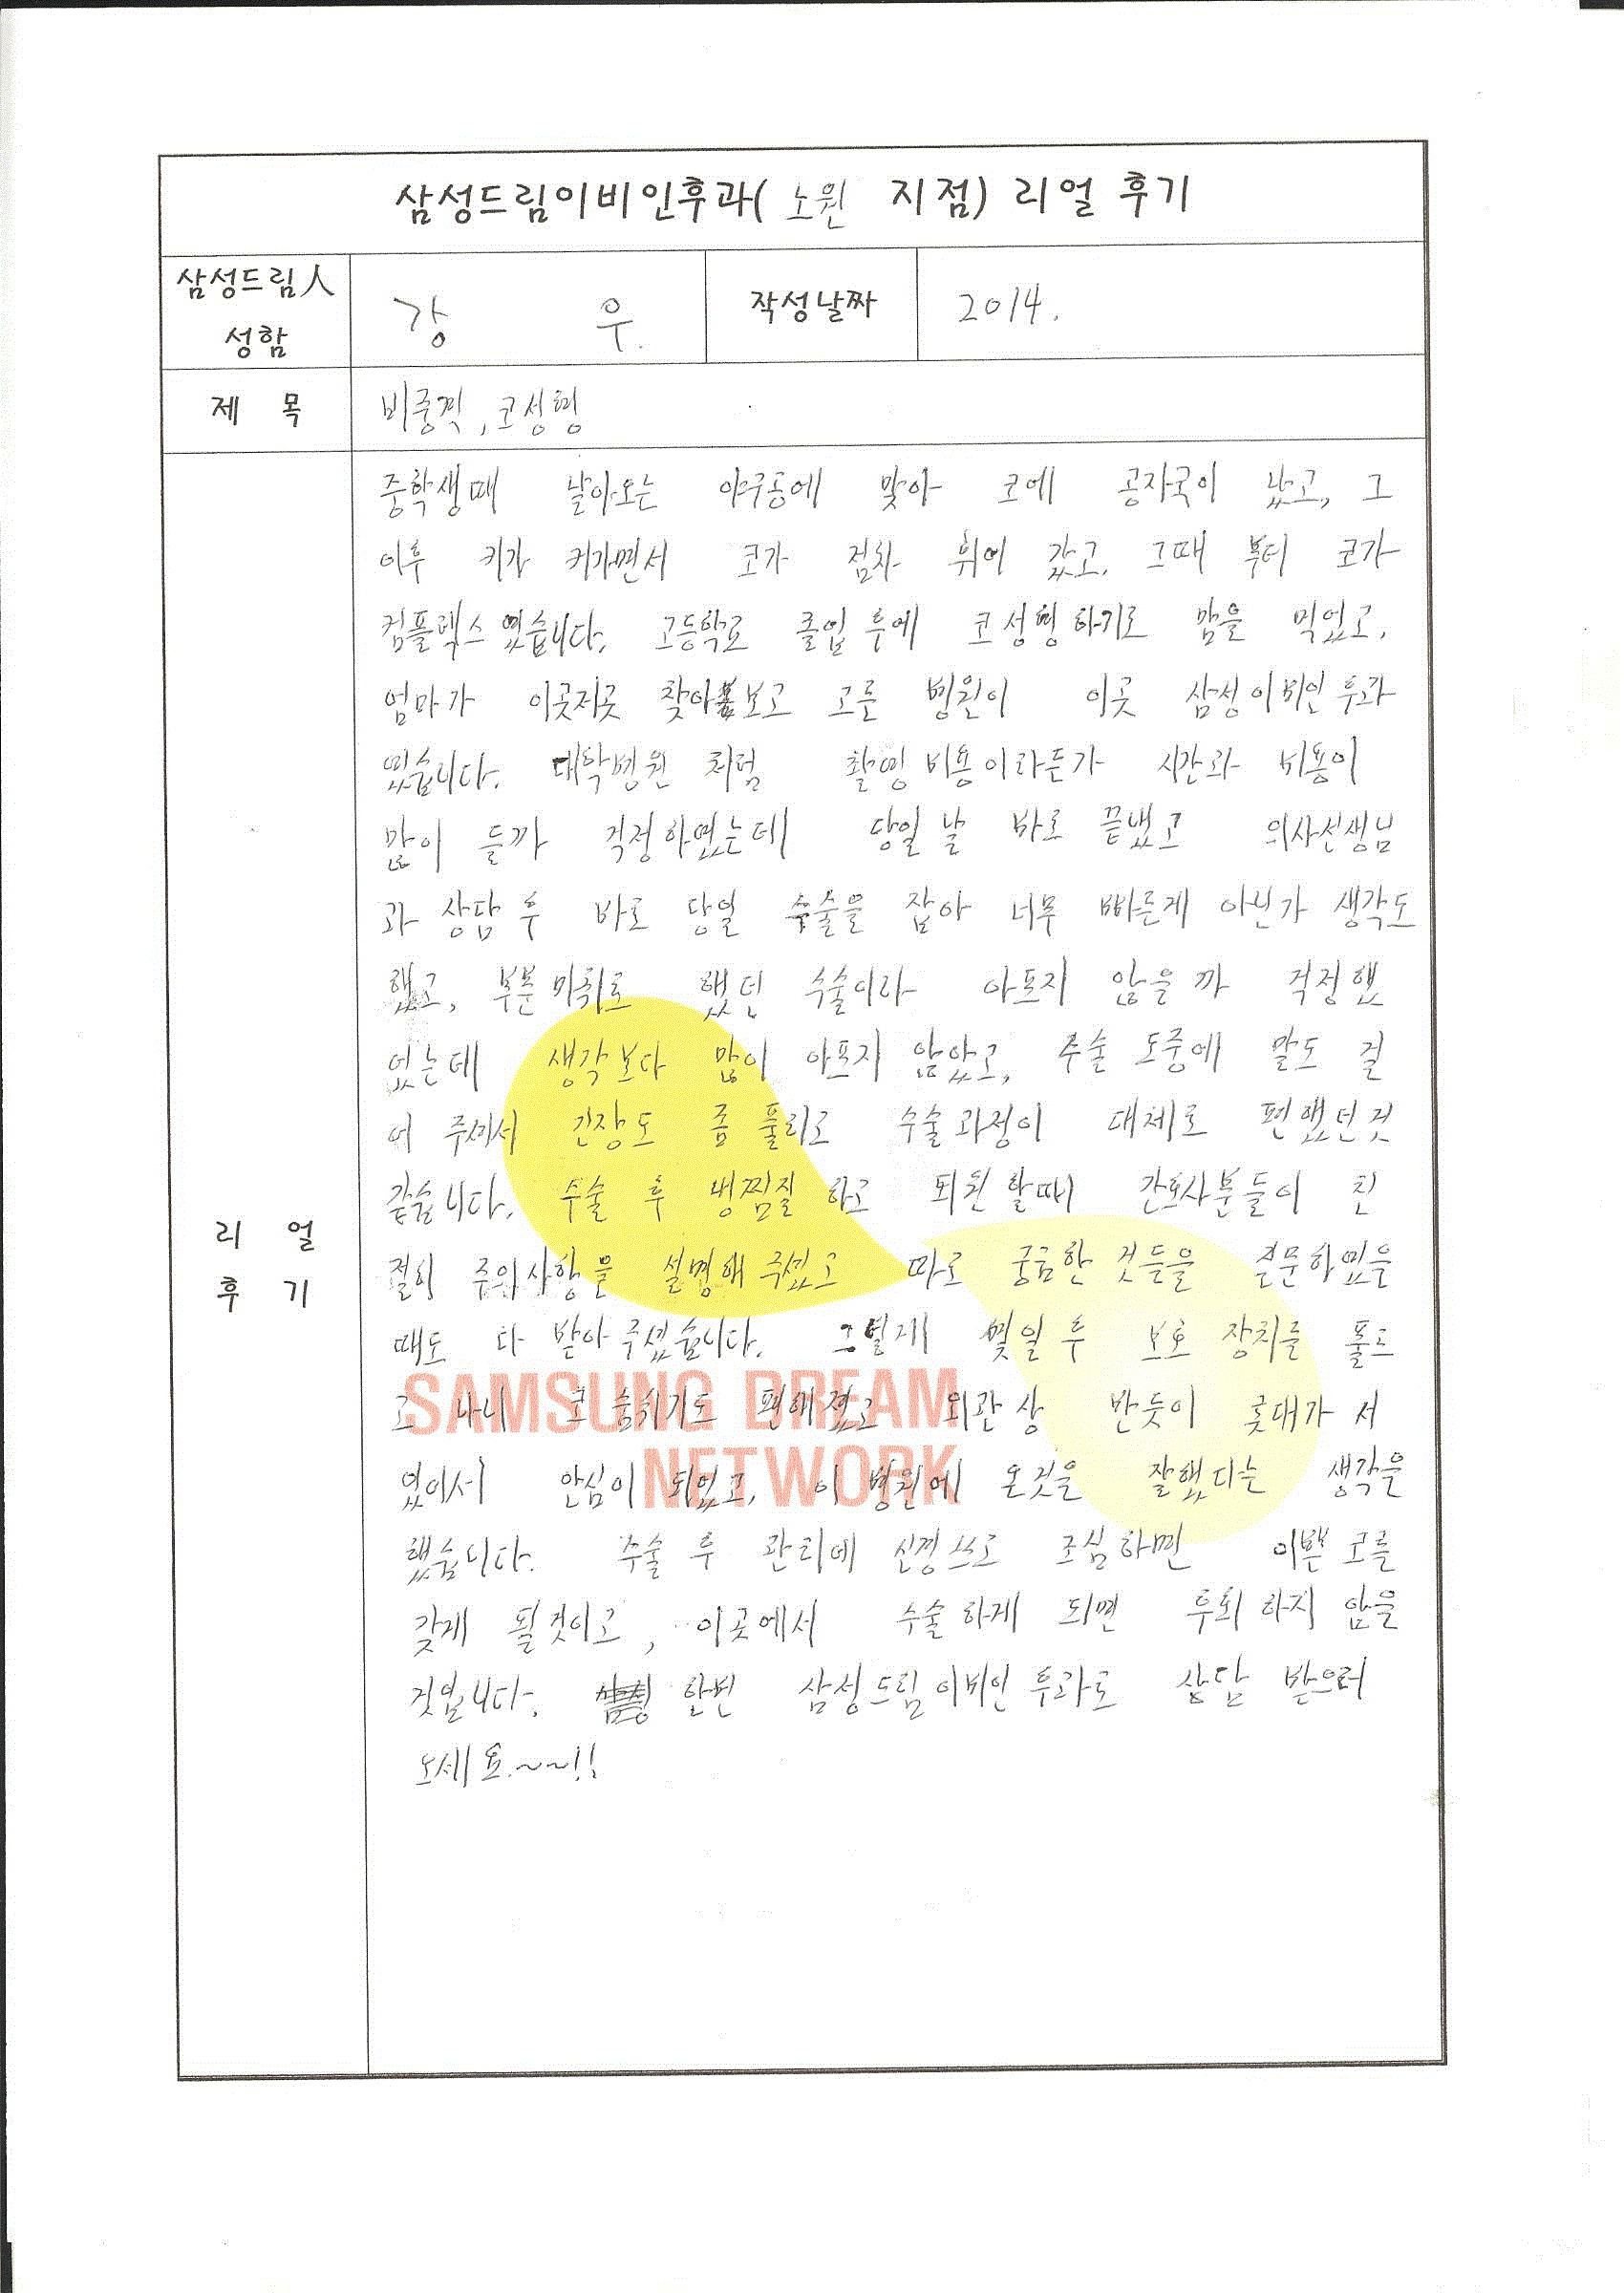 삼성드림이비인후과( 노원 지점) 리얼 후기
삼성드림人
성함
강 우.
작성날짜
2014.
제 목
비중격, 코성형
리 얼
후 기
중학생때 날아오는 야구공에 맞아 코에 공자국이 났고, 그
이후 키가 커가면서 코가 점차 휘어 갔고, 그때 부터 코가
컴플렉스였습니다. 고등학교 졸업 후에 코성형하기로 맘을 먹었고,
엄마가 이곳저곳 찾아보고 고른 병원이 이곳 삼성이비인후과
였습니다. 대학병원 처럼 촬영비용이라든가 시간과 비용이
많이 들까 걱정하였는데 당일날 바로 끝냈고 의사선생님
과 상담 후 바로 당일 수술을 잡아 너무 빠른게 아닌가 생각도
했고, 부분마취로 했던 수술이라 아프지 않을까 걱정했
었는데 생각보다 많이 아프지 않았고, 수술 도중에 말도 걸
어 주셔서 긴장도 좀 풀리고 수술과정이 대체로 편했던것
같습니다. 수술 후 냉찜질하고 퇴원할때 간호사분들이 친
절히 주의사항을 설명해주셨고 따로 궁금한 것들을 질문하였을
때도 다 받아주셨습니다. 그렇게 몇일후 보호장치를 풀르
고 나니 코 숨쉬기도 편해졌고 외관상 반듯이 콧대가 서
있어서 안심이 되었고, 이 병원에 온것을 잘했다는 생각을
했습니다. 수술 후 관리에 신경쓰고 조심하면 이쁜 코를
갖게 될것이고, 이곳에서 수술하게 되면 후회하지 않을
것입니다. 한번 삼성드림이비인후과로 상담 받으러
오세요.~~!!
SAMSUNG DREAM
NETWORK